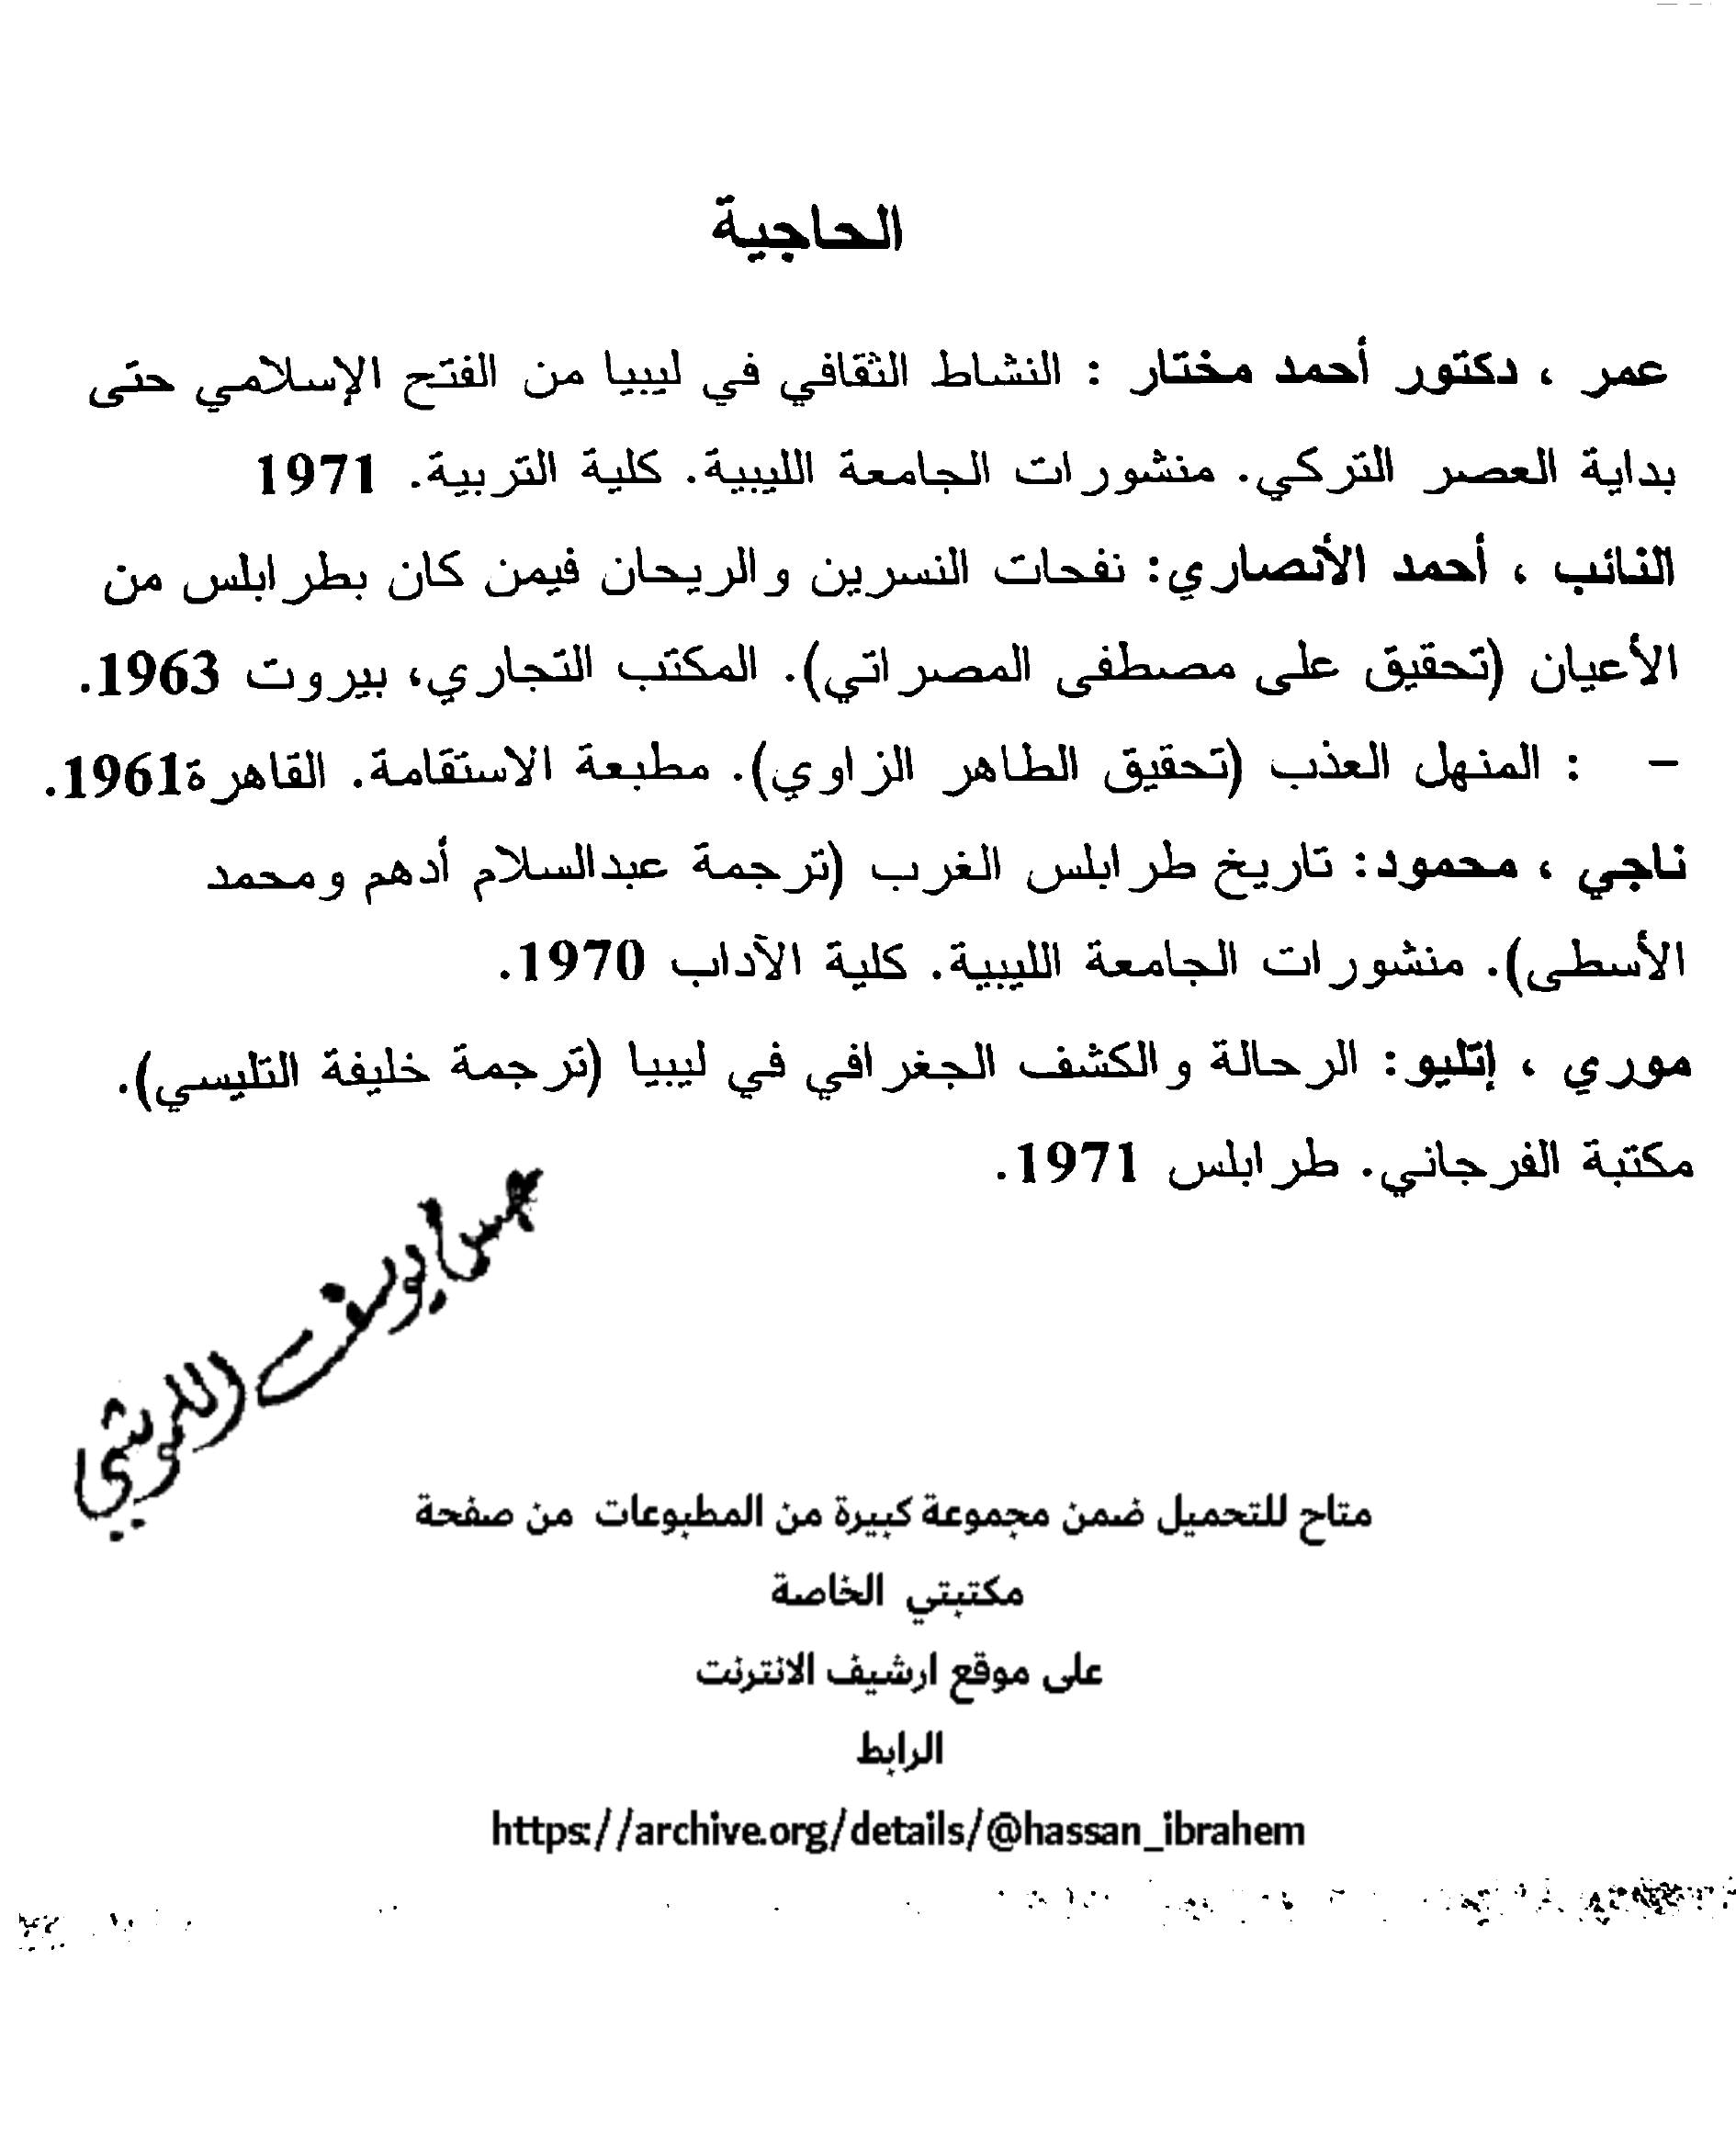 الحاجية
عمر ، دكتور أحمد مختار : النشاط الثقافي في ليبيا من الفتح الإسلامي حتى
بداية العصر التركي. منشورات الجامعة الليبية. كلية التربية. 1971
النائب ، أحمد الأنصاري: نفحات النسرين والريحان فيمن كان بطرابلس من
الأعيان (تحقيق على مصطفى المصراتي). المكتب التجاري، بيروت 1963.
– : المنهل العذب (تحقيق الطاهر الزاوي). مطبعة الاستقامة. القاهرة1961.
ناجي ، محمود: تاريخ طرابلس الغرب (ترجمة عبدالسلام أدهم ومحمد
الأسطى). منشورات الجامعة الليبية. كلية الآداب 1970.
موري ، إتليو: الرحالة والكشف الجغرافي في ليبيا (ترجمة خليفة التليسي).
مكتبة الفرجاني. طرابلس 1971.
يوسف
متاح للتحميل ضمن مجموعة كبيرة من المطبوعات من صفحة
مكتبتي الخاصة
على موقع ارشيف الانترنت
الرابط
https://archive.org/details/@hassan_ibrahem